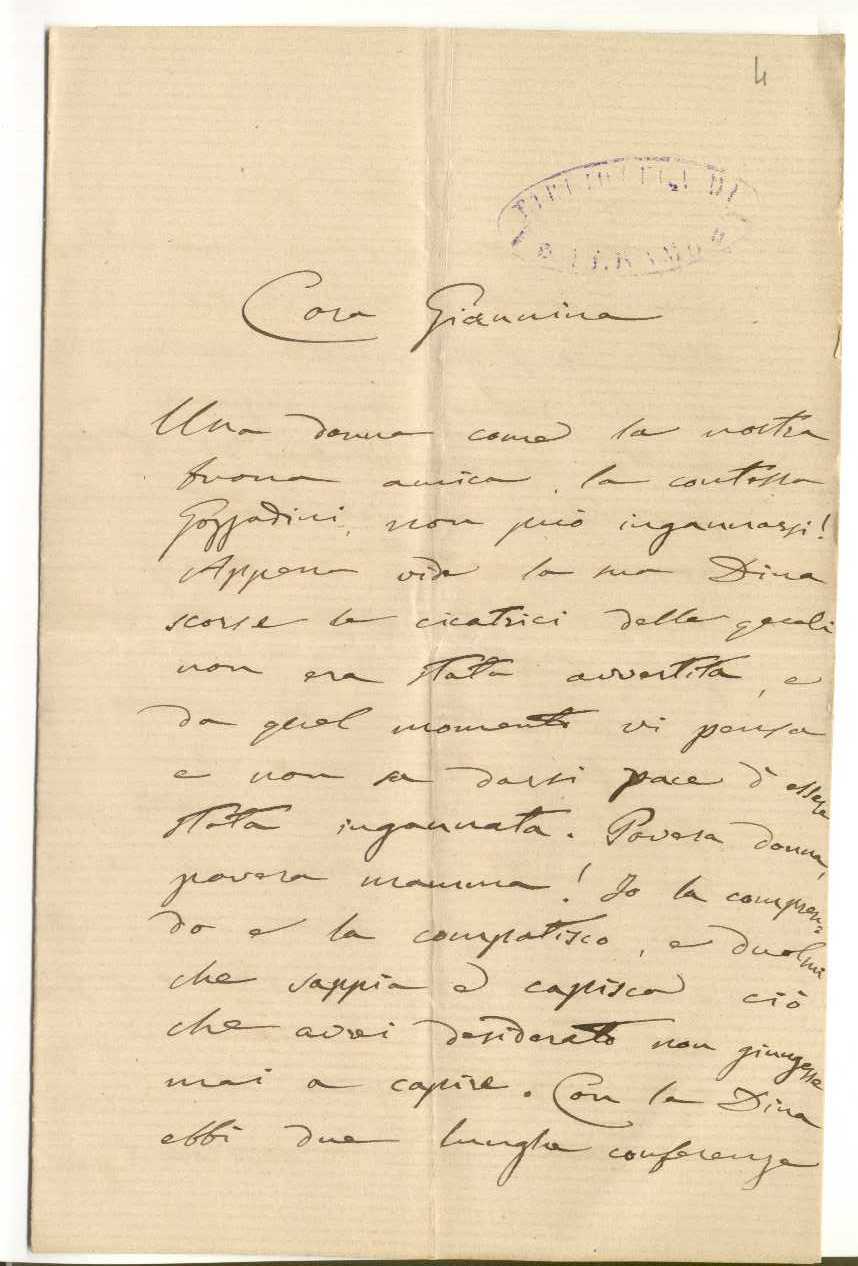 4
BIBLIOTECA DI
BERGAMO
Cara Giannina
Una donna come la nostra
buona amica, la contessa
Gozzadini, non può ingannarsi!
Appena vide la sua Dina
scorse le cicatrici delle quali
non era stata avvertita, e
da quel momento vi pensa
e non sa darsi pace d'essere
stata ingannata. Povera donna,
povera mamma! Io la compren-
do e la compatisco, e duolmi
che sappia e capisca ciò
che avrei desiderato non giungesse
mai a capire. Con la Dina
ebbi due lunghe conferenze